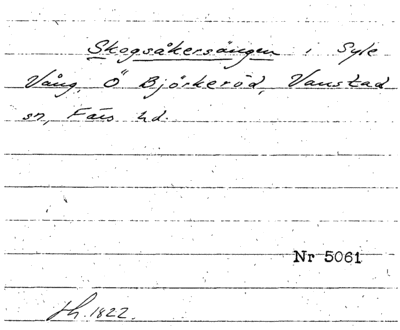 Skogsåkersängen i Syle
Vång, Ö Björkeröd, Vanstad
sn, Färs hd.
Nr 5061
1822.